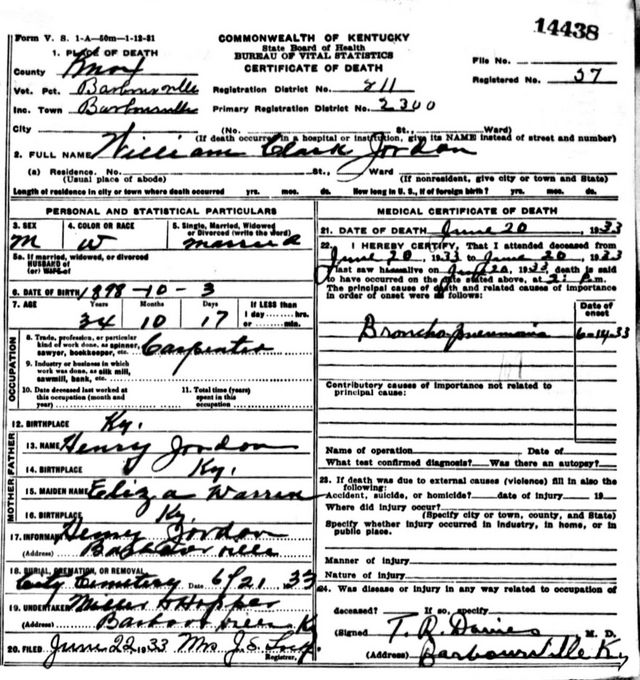 14438
Form V. S. 1-A—50m—1-12-31
COMMONWEALTH OF KENTUCKY
State Board of Health
BUREAU OF VITAL STATISTICS
CERTIFICATE OF DEATH
1. PLACE OF DEATH
County Knox
File No.
Vot. Pct. Barbourville Registration District No. 811 Registered No. 37
Inc. Town Barbourville Primary Registration District No. 2300
City (No. St., Ward)
(If death occurred in a hospital or institution, give its NAME instead of street and number)
2. FULL NAME William Clark Jordon
(a) Residence. No. St., Ward
(Usual place of abode) (If nonresident, give city or town and State)
Length of residence in city or town where death occurred yrs. mos. ds. How long in U. S., if of foreign birth? yrs. mos. ds.
PERSONAL AND STATISTICAL PARTICULARS
3. SEX 4. COLOR OR RACE 5. Single, Married, Widowed or Divorced (write the word)
M W Married
5a. If married, widowed, or divorced
HUSBAND of
(or) WIFE of
6. DATE OF BIRTH 1898-10-3
7. AGE Years Months Days If LESS than
1 day hrs.
34 10 17 or min.
OCCUPATION
8. Trade, profession, or particular
kind of work done, as spinner,
sawyer, bookkeeper, etc. Carpenter
9. Industry or business in which
work was done, as silk mill,
sawmill, bank, etc.
10. Date deceased last worked at
this occupation (month and
year)
11. Total time (years)
spent in this
occupation
12. BIRTHPLACE Ky.
FATHER
13. NAME Henry Jordon
14. BIRTHPLACE Ky.
MOTHER
15. MAIDEN NAME Eliza Warren
16. BIRTHPLACE Ky
17. INFORMANT Henry Jordon
(Address) Barbourville
18. BURIAL, CREMATION, OR REMOVAL
City Cemetery Date 6/21 1933
19. UNDERTAKER Miller & Hopper
(Address) Barbourville Ky
20. FILED June 22 1933 Mrs J. S.
Registrar.
MEDICAL CERTIFICATE OF DEATH
21. DATE OF DEATH June 20, 1933
22. I HEREBY CERTIFY, That I attended deceased from
June 20, 1933 to June 20, 1933
I last saw h alive on June 20, 1933, death is said
to have occurred on the date stated above, at 2: P.m.
The principal cause of death and related causes of importance
in order of onset were as follows:
Date of
onset
Bronchopneumonia 6-14-33
Contributory causes of importance not related to
principal cause:
Name of operation Date of
What test confirmed diagnosis? Was there an autopsy?
23. If death was due to external causes (violence) fill in also the
following:
Accident, suicide, or homicide? date of injury 19
Where did injury occur?
(Specify city or town, county, and State)
Specify whether injury occurred in industry, in home, or in
public place.
Manner of injury
Nature of injury
24. Was disease or injury in any way related to occupation of
deceased? If so, specify
(Signed T. R. Davies M. D.
(Address) Barbourville Ky